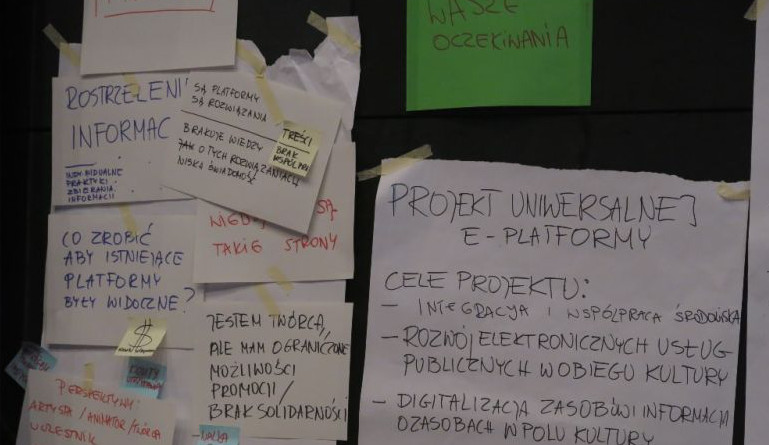 WASZE
OCZEKIWANIA
ROSTRZELENI
INFORMAC
INDYWIDUALNE
PRAKTYKI
ZBIERANIA
INFORMACJI
SĄ PLATFORMY
SĄ ROZWIĄZANIA
BRAKUJE WIEDZY
JAK O TYCH ROZWIĄZANIACH
NISKA ŚWIADOMOŚĆ
TREŚCI
BRAK
SĄ
TAKIE STRONY
CO ZROBIĆ
ABY ISTNIEJĄCE
PLATFORMY
BYŁY WIDOCZNE?
$
JESTEM TWÓRCĄ
ALE MAM OGRANICZONE
MOŻLIWOŚCI
PROMOCJI/
BRAK SOLIDARNOŚCI
PERSPEKTYWY
ARTYSTA/ANIMATOR/TWÓRCA
UCZESTNIK
PROJEKT UNIWERSALNEJ
E-PLATFORMY
CELE PROJEKTU:
- INTEGRACJA I WSPÓŁPRACA ŚRODOWISKA
- ROZWÓJ ELEKTRONICZNYCH USŁUG
PUBLICZNYCH W OBIEGU KULTURY
- DIGITALIZACJA ZASOBÓW I INFORMACJI
O ZASOBACH W POLU KULTURY